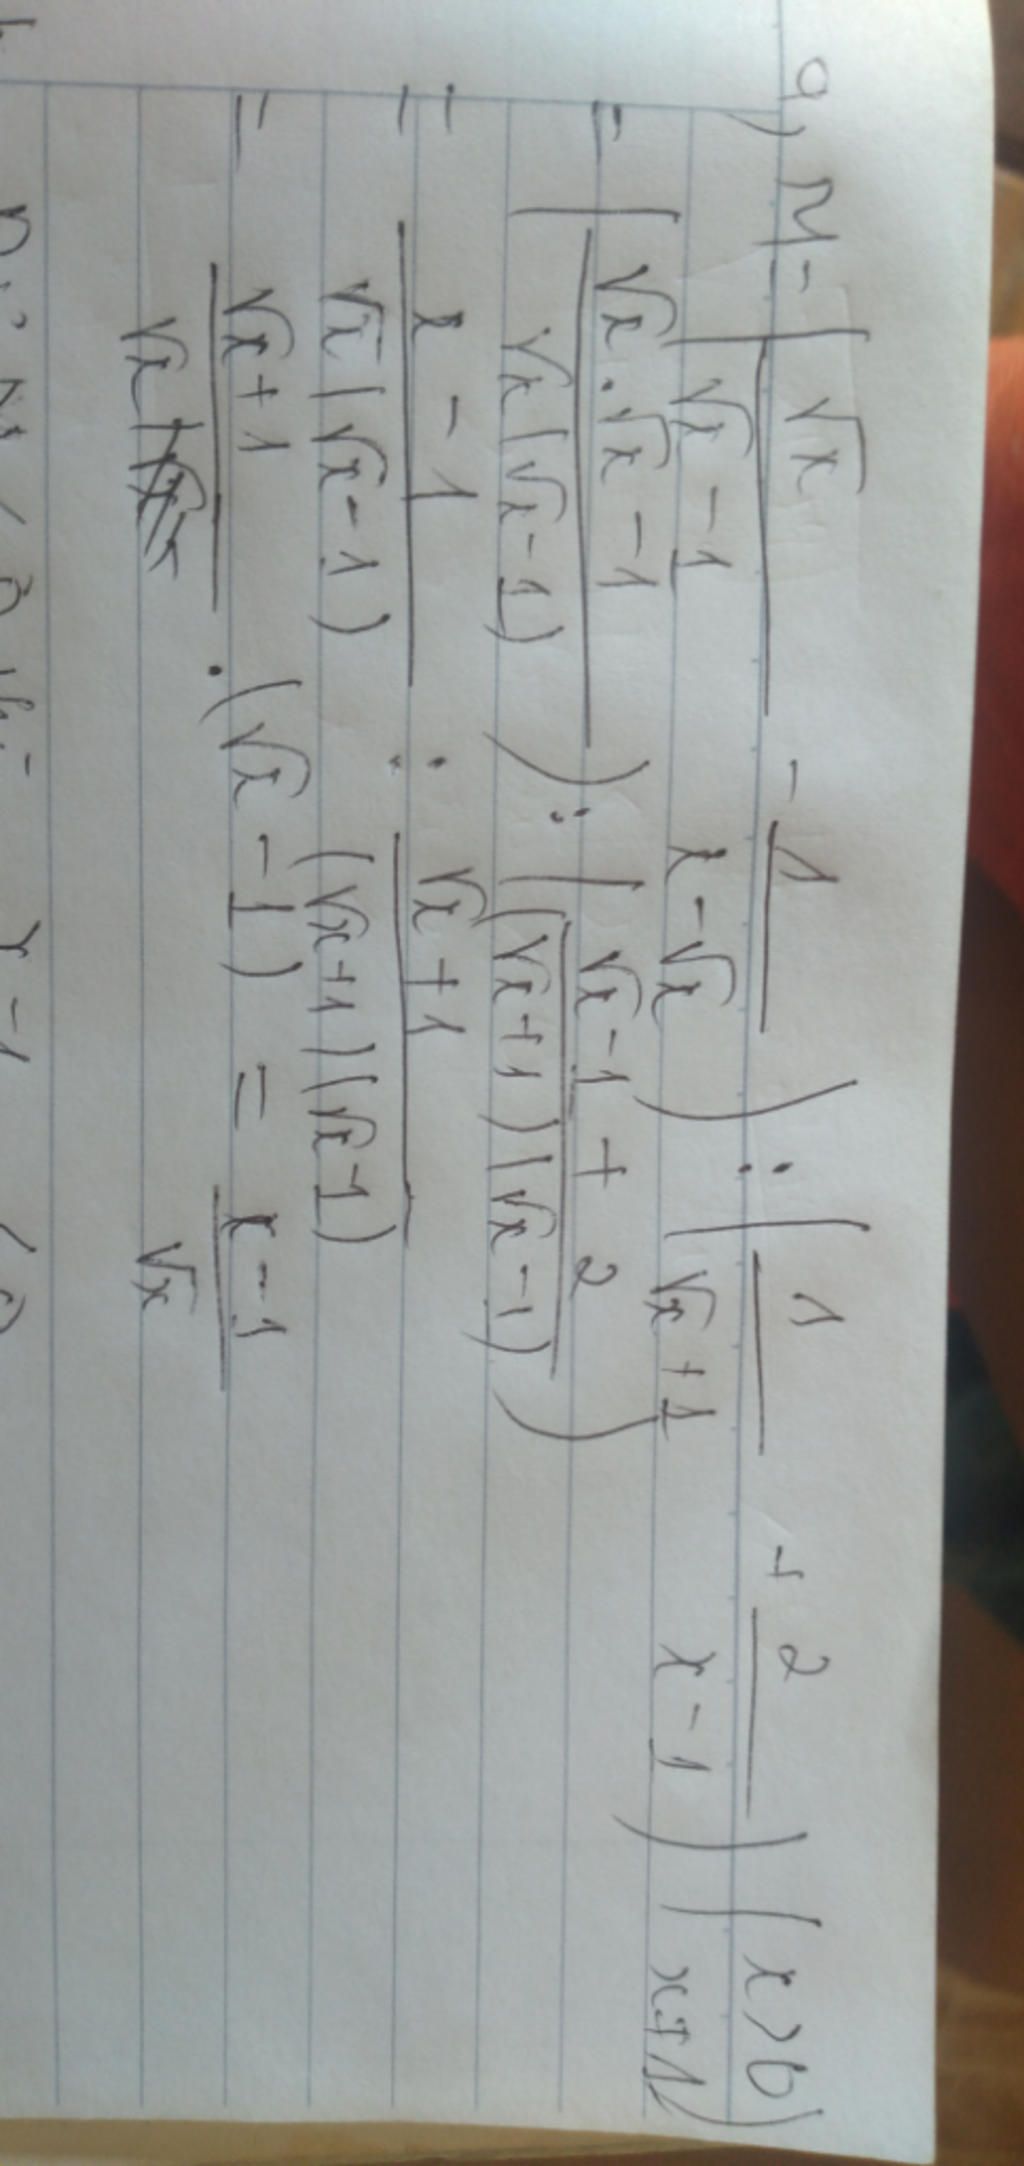 a, M = ( √x / (√x - 1) - 1 / (x - √x) ) : ( 1 / (√x + 1) + 2 / (x - 1) ) ( x > 0 x ≠ 1 )
= ( (√x . √x - 1) / (√x (√x - 1)) ) : ( (√x - 1 + 2) / ((√x + 1)(√x - 1)) )
= (x - 1) / (√x (√x - 1)) : (√x + 1) / ((√x + 1)(√x - 1))
= (√x + 1) / √x . (√x - 1) = (x - 1) / √x